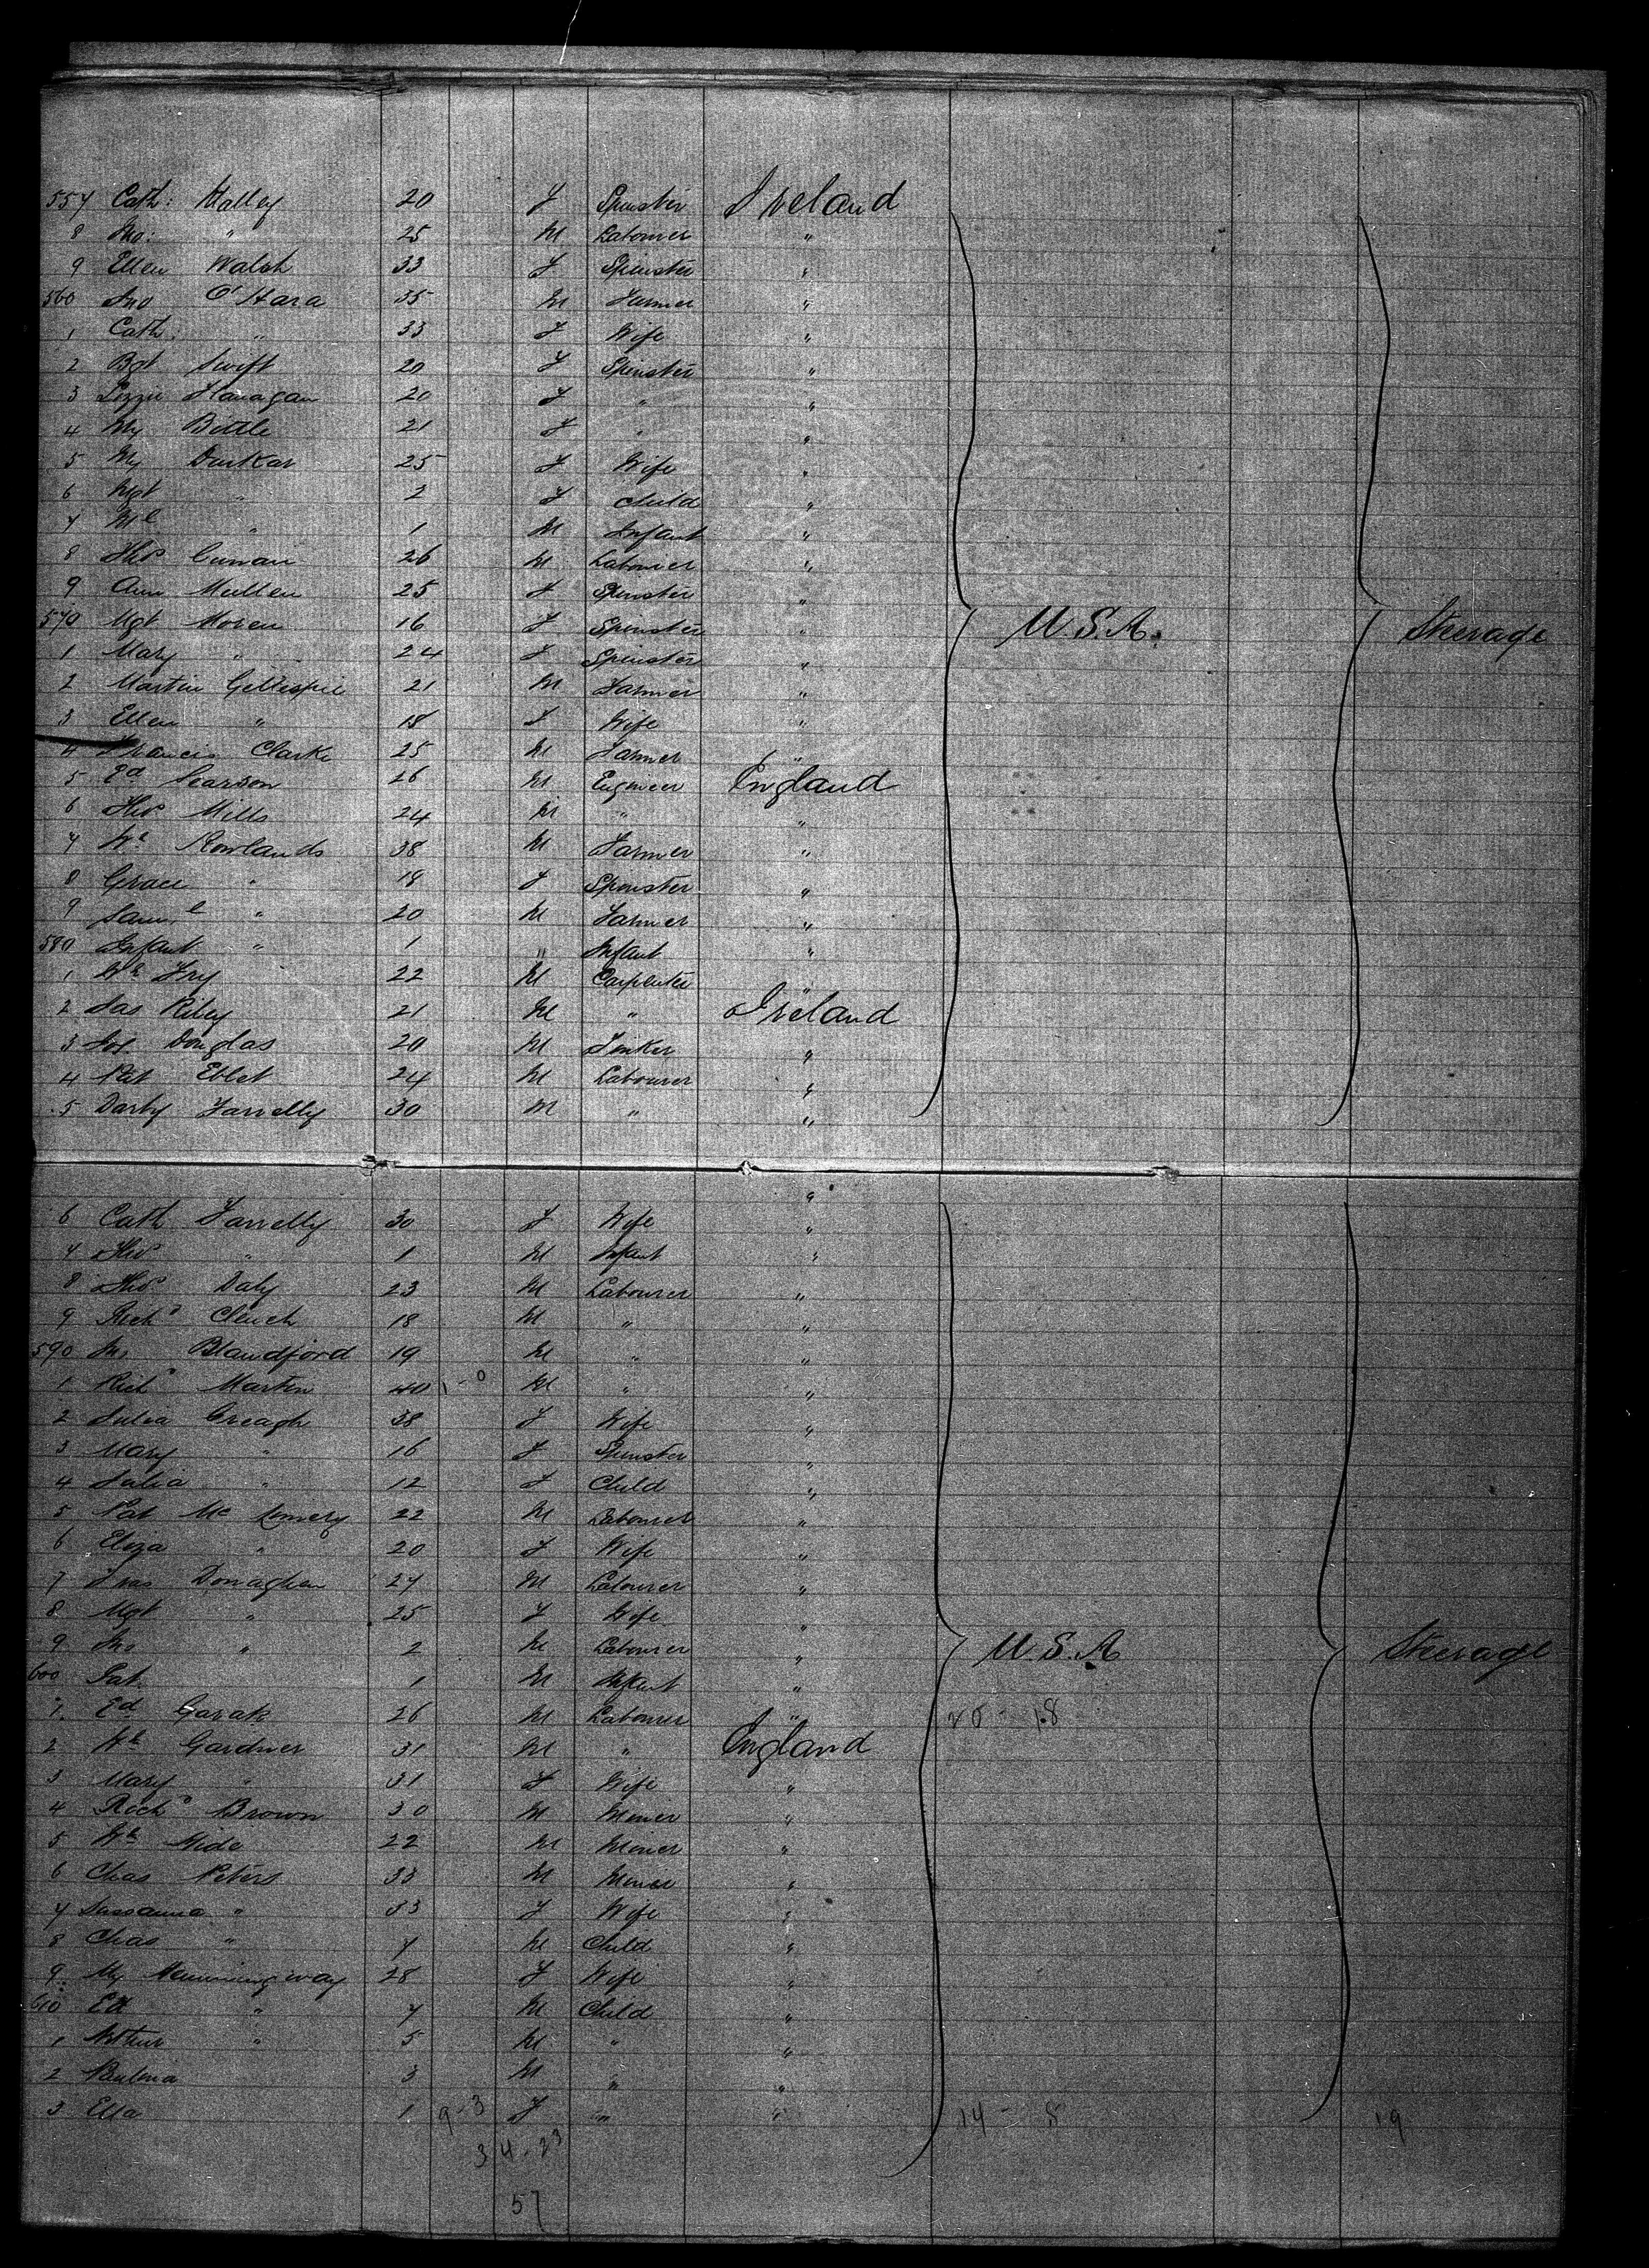 557 Cath: Malley 20 F Spinster Ireland
8 Jno: " 25 M Labourer "
9 Ellen Walsh 33 F Spinster "
560 Jno O'Hara 35 M Farmer "
1 Cath: " 33 F Wife "
2 Bgt Swift 20 F Spinster "
3 Lizzie Flanagan 20 F " "
4 My Bittle 21 F " "
5 My Durkar 25 F Wife "
6 Mgt " 2 F Child "
7 Ml " 1 M Infant "
8 Thos 26 M Labourer "
9 Ann Mullen 25 F Spinster "
570 Mgt Moren 16 F Spinster " U.S.A. Steerage
1 Mary " 24 F Spinster "
2 Martin Gillespie 21 M Farmer "
3 Ellen " 18 F Wife "
4 Francis Clarke 25 M Farmer "
5 Ed Pearson 26 M Engineer England
6 Thos Mills 24 M " "
7 Wm Rowlands 38 M Farmer "
8 Grace " 18 F Spinster "
9 Saml " 20 M Farmer "
580 Infant " 1 " Infant "
1 Wm Fry 22 M Carpenter "
2 Jas Riley 21 M " Ireland
3 Jos. Douglas 20 M "
4 Pat Eblet 24 M Labourer "
5 Darby Farrelly 30 M " "
"
6 Cath Farrelly 30 F Wife "
7 Thos " 1 M Infant "
8 Thos Daly 23 M Labourer "
9 Richd Clinch 18 M " "
590 Jno Blandford 19 M " "
1 Richd Martin 40 1-0 M " "
2 Julia Creagh 38 F Wife "
3 Mary " 16 F Spinster "
4 Julia " 12 F Child "
5 Pat Mc 22 M Labourer "
6 Eliza " 20 F Wife "
7 Donaghan 27 M Labourer "
8 Mgt " 25 F Wife "
9 Jno " 2 M Labourer " U.S.A Steerage
600 Pat 1 M Infant "
1 Ed Garak 26 M Labourer " 20 - 18
2 Wm Gardner 31 M " England
3 Mary " 31 F Wife "
4 Richd Brown 30 M Miner "
5 Wm Hide 22 M Miner "
6 Chas Peters 33 M Miner "
7 Sussanna " 33 F Wife "
8 Chas " 7 M Child "
9 My Hemmingway 28 F Wife "
610 Ed " 7 M Child "
1 Arthur " 5 M " "
2 Paulina 3 M " "
3 Ella 1 9-3 F " " 14 - 5 19
34-23
57